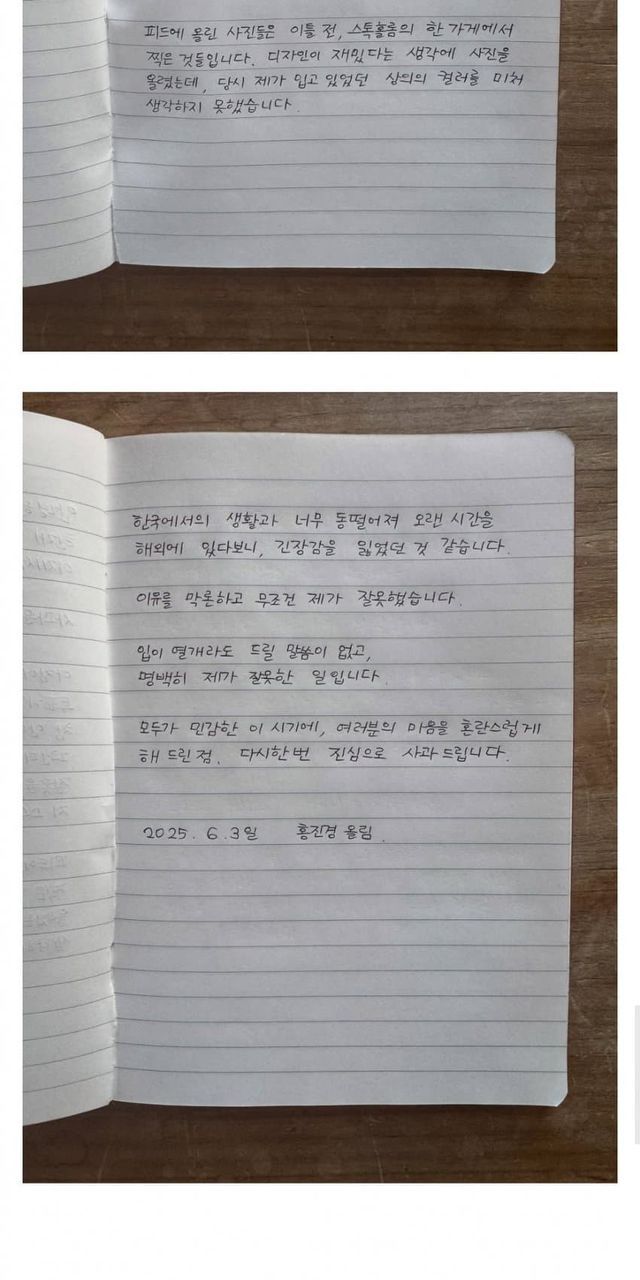 피드에 올린 사진들은 이틀 전, 스톡홀름의 한 가게에서
찍은 것들입니다. 디자인이 재밌다는 생각에 사진을
올렸는데, 당시 제가 입고 있었던 상의의 컬러를 미처
생각하지 못했습니다.
한국에서의 생활과 너무 동떨어져 오랜 시간을
해외에 있다보니, 긴장감을 잃었던 것 같습니다.
이유를 막론하고 무조건 제가 잘못했습니다.
입이 열개라도 드릴 말씀이 없고,
명백히 제가 잘못한 일입니다.
모두가 민감한 이 시기에, 여러분의 마음을 혼란스럽게
해 드린 점, 다시한번 진심으로 사과드립니다.
2025. 6. 3일 홍진경 올림.